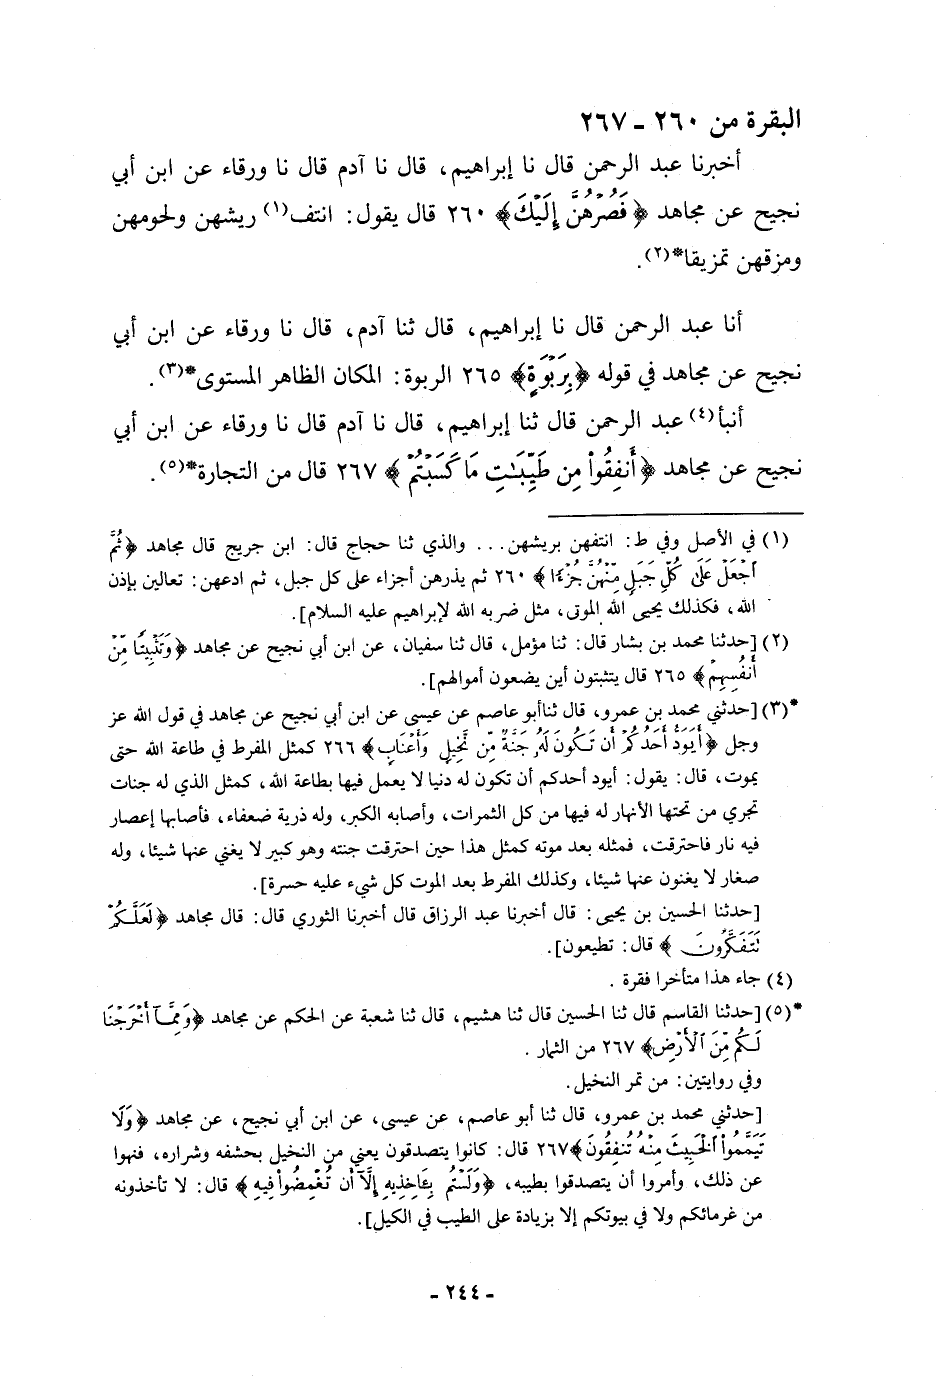 البقرة من ٢٦٠ ـ ٢٦٧
أخبرنا عبد الرحمن قال نا إبراهيم، قال نا آدم قال نا ورقاء عن ابن أبي
نجيح عن مجاهد ﴿ فَصُرْهُنَّ إِلَيْكَ﴾ ٢٦٠ قال يقول: انتف(١) ريشهن ولحومهن
ومزقهن تمزيقا*(٢).
أنا عبد الرحمن قال نا إبراهيم، قال ثنا آدم، قال نا ورقاء عن ابن أبي
نجيح عن مجاهد في قوله ﴿بِرَبْوَةٍ﴾ ٢٦٥ الربوة: المكان الظاهر المستوى*(٣).
أنبأ(٤) عبد الرحمن قال ثنا إبراهيم، قال نا آدم قال نا ورقاء عن ابن أبي
نجيح عن مجاهد ﴿أَنفِقُواْ مِن طَيِّبَـٰتِ مَا كَسَبْتُمْ ﴾ ٢٦٧ قال من التجارة*(٥).
(١) في الأصل وفي ط: انتفهن بريشهن... والذي ثنا حجاج قال: ابن جريج قال مجاهد ﴿ثُمَّ
اجْعَلْ عَلَىٰ كُلِّ جَبَلٍ مِّنْهُنَّ جُزْءًا﴾ ٢٦٠ ثم يذرهن أجزاء على كل جبل، ثم ادعهن: تعالين بإذن
الله، فكذلك يحيى الله الموتى، مثل ضربه الله لإبراهيم عليه السلام].
(٢) [حدثنا محمد بن بشار قال: ثنا مؤمل، قال ثنا سفيان، عن ابن أبي نجيح عن مجاهد ﴿وَتَثْبِيتًا مِّنْ
أَنفُسِهِمْ﴾ ٢٦٥ قال يتثبتون أين يضعون أموالهم].
*(٣) [حدثني محمد بن عمرو، قال ثناأبو عاصم عن عيسى عن ابن أبي نجيح عن مجاهد في قول الله عز
وجل ﴿أَيَوَدُّ أَحَدُكُمْ أَن تَكُونَ لَهُۥ جَنَّةٌ مِّن نَّخِيلٍ وَأَعْنَابٍ﴾ ٢٦٦ كمثل المفرط في طاعة الله حتى
يموت، قال: يقول: أيود أحدكم أن تكون له دنيا لا يعمل فيها بطاعة الله، كمثل الذي له جنات
تجري من تحتها الأنهار له فيها من كل الثمرات، وأصابه الكبر، وله ذرية ضعفاء، فأصابها إعصار
فيه نار فاحترقت، فمثله بعد موته كمثل هذا حين احترقت جنته وهو كبير لا يغني عنها شيئا، وله
صغار لا يغنون عنها شيئا، وكذلك المفرط بعد الموت كل شيء عليه حسرة].
[حدثنا الحسين بن يحيى: قال أخبرنا عبد الرزاق قال أخبرنا الثوري قال: قال مجاهد ﴿لَعَلَّكُمْ
تَتَفَكَّرُونَ ﴾ قال: تطيعون].
(٤) جاء هذا متأخرا فقرة .
*(٥) [حدثنا القاسم قال ثنا الحسين قال ثنا هشيم، قال ثنا شعبة عن الحكم عن مجاهد ﴿وَمِمَّآ أَخْرَجْنَا
لَكُم مِّنَ الْأَرْضِ﴾ ٢٦٧ من الثمار .
وفي روايتين: من تمر النخيل.
[حدثني محمد بن عمرو، قال ثنا أبو عاصم، عن عيسى، عن ابن أبي نجيح، عن مجاهد ﴿وَلَا
تَيَمَّمُواْ الْخَبِيثَ مِنْهُ تُنفِقُونَ﴾٢٦٧ قال: كانوا يتصدقون يعني من النخيل بحشفه وشراره، فنهوا
عن ذلك، وأمروا أن يتصدقوا بطيبه، ﴿وَلَسْتُم بِـَٔاخِذِيهِ إِلَّآ أَن تُغْمِضُواْ فِيهِ ﴾ قال: لا تأخذونه
من غرمائكم ولا في بيوتكم إلا بزيادة على الطيب في الكيل].
- ٢٤٤ -